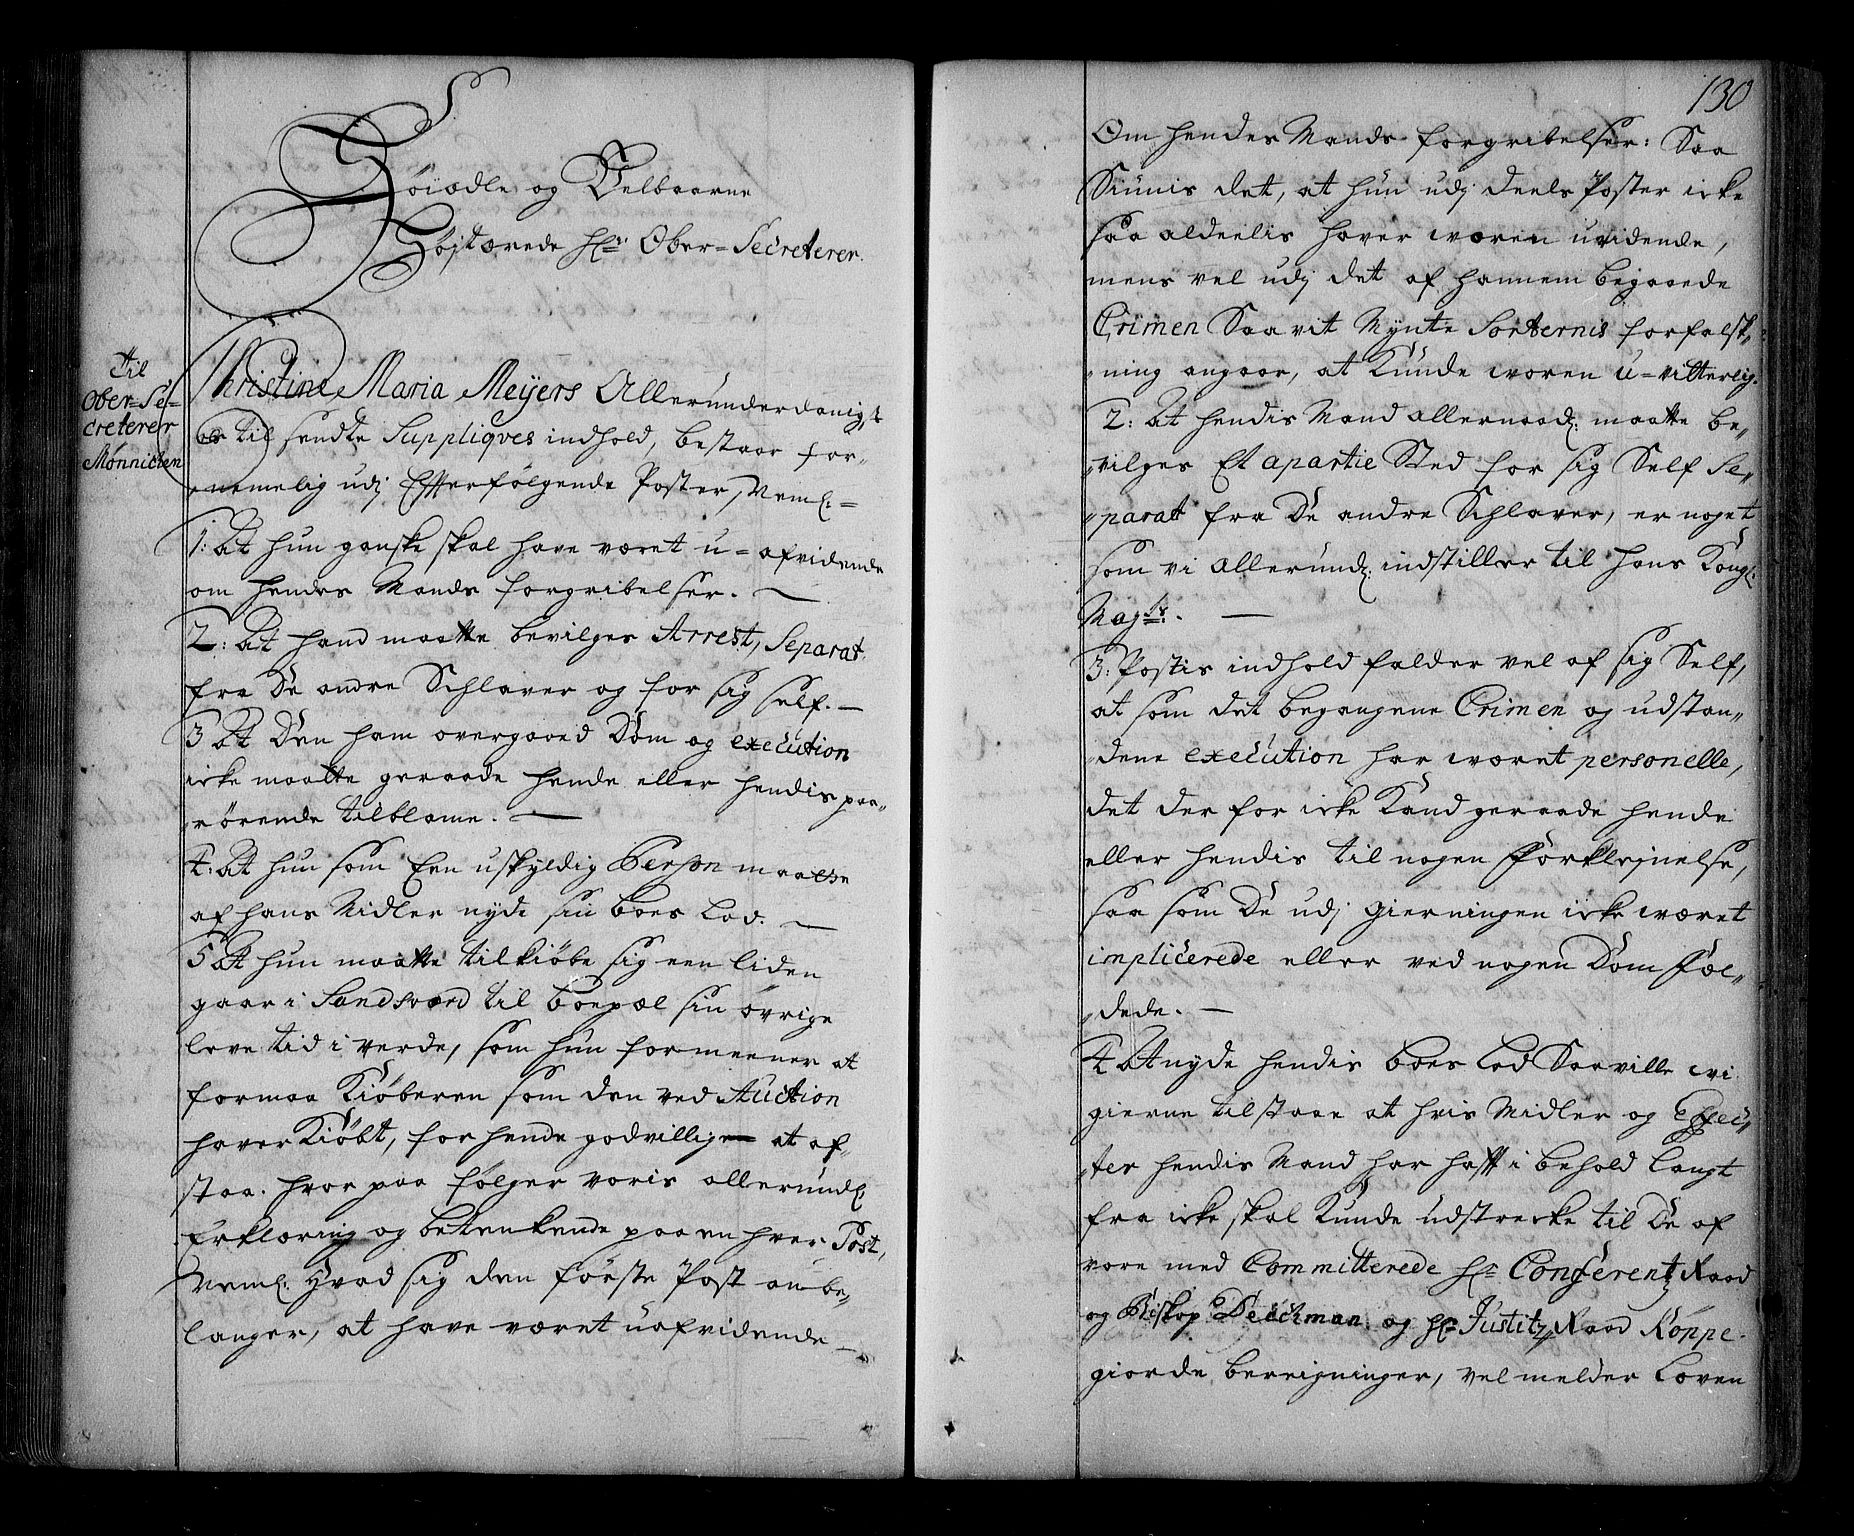 Høiædle og Velbaarne
Højtærede Hr: Ober-Secreterer.
Til
Ober-Se-
creterer
Mønnichen
Christine Maria Meÿers Allerunderdanigst
til sendte Suppliqves indhold, bestaar for-
nemelig udj Efterfølgende Poster, Neml:
1: At hun ganske skal have været u-afvidende
om hendes Mands forgribelser.
2: At hand maatte bevilges Arrest, Separat
fra De andre Schlaver og for sig self.
3 At Den ham overgaaed Dom og execution
icke maatte geraade hende eller hendis paa-
rørende til blame.
4: At hun som Een uskyldig Person maatte
af hans Midler nyde sin boes Lod.
5 At hun maatte tilkiøbe sig een liden
gaar i Sandsværd til boepæl sin øvrige
leve tid i verde, som hun formeener at
formaa Kiøberen som den ved Auction
haver Kiøbt, for hende godvilligen at af-
staa. hvor paa følger voris allerundl:
Erklæring og betenkende paa en hver Post,
Neml: Hvad sig den første Post anbe-
langer, at have været uafvidende
130
Om hendes Mands forgribelser: Saa
Siunis det, at hun udj deels Poster icke
saa aldeelis haver været uvidende,
mens vel udj det af hannem begaaede
Crimen Saavit Mynte Sorternis forfalsk-
ning angaar, at Kunde været u-vitterlig.
2: At hendis Mand allernaad: maatte be-
vilges Et apartie Sted for sig Self Se-
parat fra De andre Schlaver, er noget
som vi allerund: indstiller til hans Kongl:
Mayts:.
3: Postis indhold falder vel af sig Self,
at som det begangene Crimen og udstan-
dene execution har været personelle,
det der for icke Kand geraade hende
eller hendis til nogen Forklejnelse,
saa som De udj gierningen icke været
implicerede eller ved nogen Dom fæl-
dede.
4 At nyde hendis boes Lod Saa ville vi
gierne tilstaae at hvis Midler og Effec-
ter hendis Mand har haft i behold langt
fra icke skal Kunde udstrecke til De af
vore med Committerede Hr Conferentz Raad
og Biskop Deichman og Hr Justitz Raad Köppe
giorde bereigninger, vel melder Loven